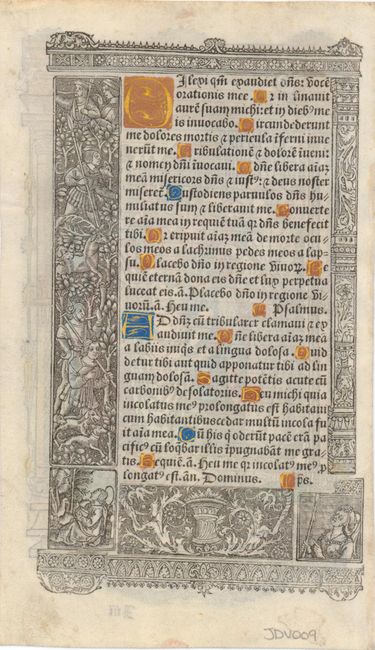 Ilexi qm̄ exaudiet dn̄s: vocē
orationis mee. Qr inclinauit
aurē suam michi: et in dieb⁹ me
is inuocabo. Circundederunt
me dolores mortis ⁊ pericula īferni inue
nerūt me. Tribulationē ⁊ dolorē īueni
⁊ nomen dn̄i īuocaui. O dn̄e libera aīaz
meā misericors dn̄s ⁊ iust⁹: ⁊ deus noster
miseret̄. Custodiens paruulos dn̄s hu-
miliatus sum ⁊ liberauit me. Conuerte
re aīa mea in requiē tuā qr dn̄s benefecit
tibi. Qr eripuit aīaz meā de morte ocu
los meos a lachrimis pedes meos a lap-
su. Placebo dn̄o in regione viuoꝝ. Re
quiē eternā dona eis dn̄e et lux perpetua
luceat eis. ā. Placebo dn̄o in regione vi-
uorū. ā. Heu me. Psalmus.
AD dn̄z cū tribularer clamaui ⁊ ex
audiuit me. Dn̄e libera aīaz meā
a labiis iniq̄s et a lingua dolosa. Quid
detur tibi aut quid apponatur tibi ad lin
guam dolosā. Sagitte potētis acute cū
carbonib⁹ desolatoriis. Heu michi quia
incolatus me⁹ prolongatus est habitaui
cum habitantibus cedar multū incola fu
it aīa mea. Cū his q̄ oderūt pacē erā pa
cific⁹ cū loq̄bar illis īpugnabāt me gra-
tis. Requiē. ā. Heu me qr incolat⁹ me⁹ p̄
longat⁹ est. an̄. Dominus. p̄s.
JDV009